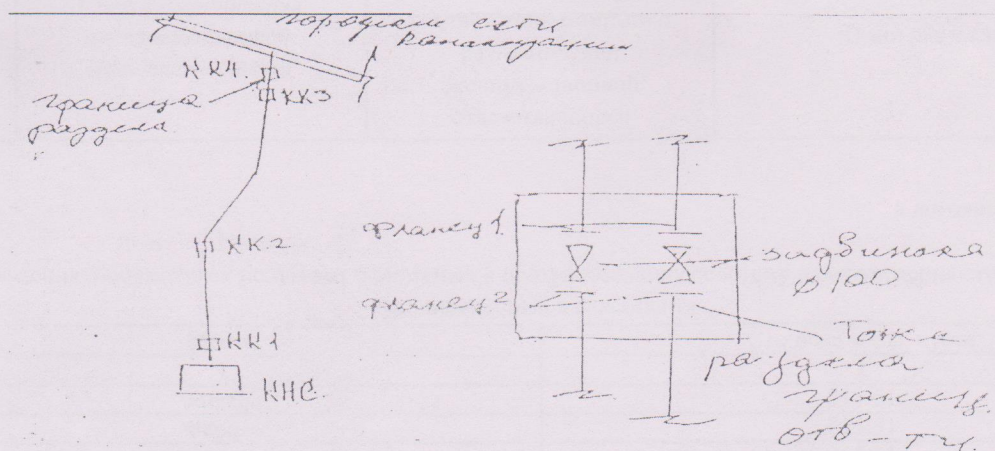 городские сети
канализации
КК4
граница
раздела
КК3
КК2
КК1
КНС
фланец 1
фланец 2
задвижка
ф 100
Точка
раздела
границ
отв-ти.